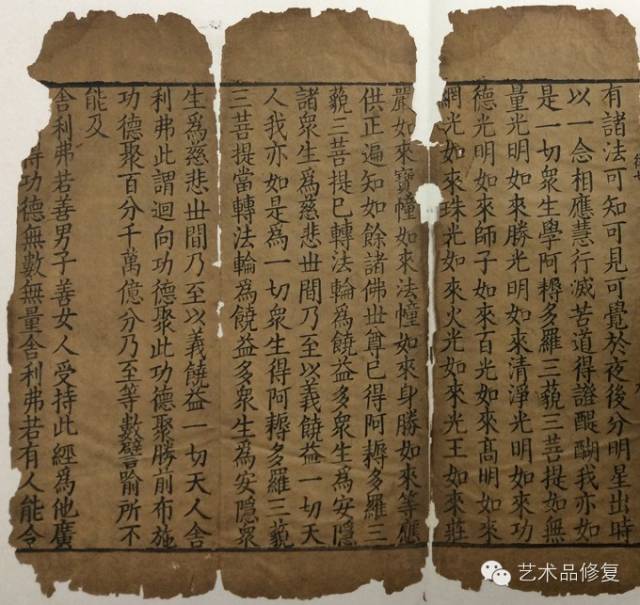 有諸法可知可見可覺於夜後分明星出時
以一念相應慧行滅苦道得證醍醐我亦如
是一切衆生學阿耨多羅三藐三菩提如無
量光明如來勝光明如來清淨光明如來功
德光明如來師子如來百光如來髙明如來
網光如來珠光如來火光如來光王如來莊
嚴如來寶幢如來法幢如來身勝如來等應
供正遍知如餘諸佛世尊已得阿耨多羅三
藐三菩提已轉法輪為饒益多衆生為安隱
諸衆生為慈悲世間乃至以義饒益一切天
人我亦如是為一切衆生得阿耨多羅三藐
三菩提當轉法輪為饒益多衆生為安隱衆
生為慈悲世間乃至以義饒益一切天人舎
利弗此謂迴向功德聚此功德聚勝前布施
功德聚百分千萬億分乃至等數譬喻所不
能及
舎利弗若善男子善女人受持此經為他廣
得功德無數無量舎利弗若有人能令
艺术品修复